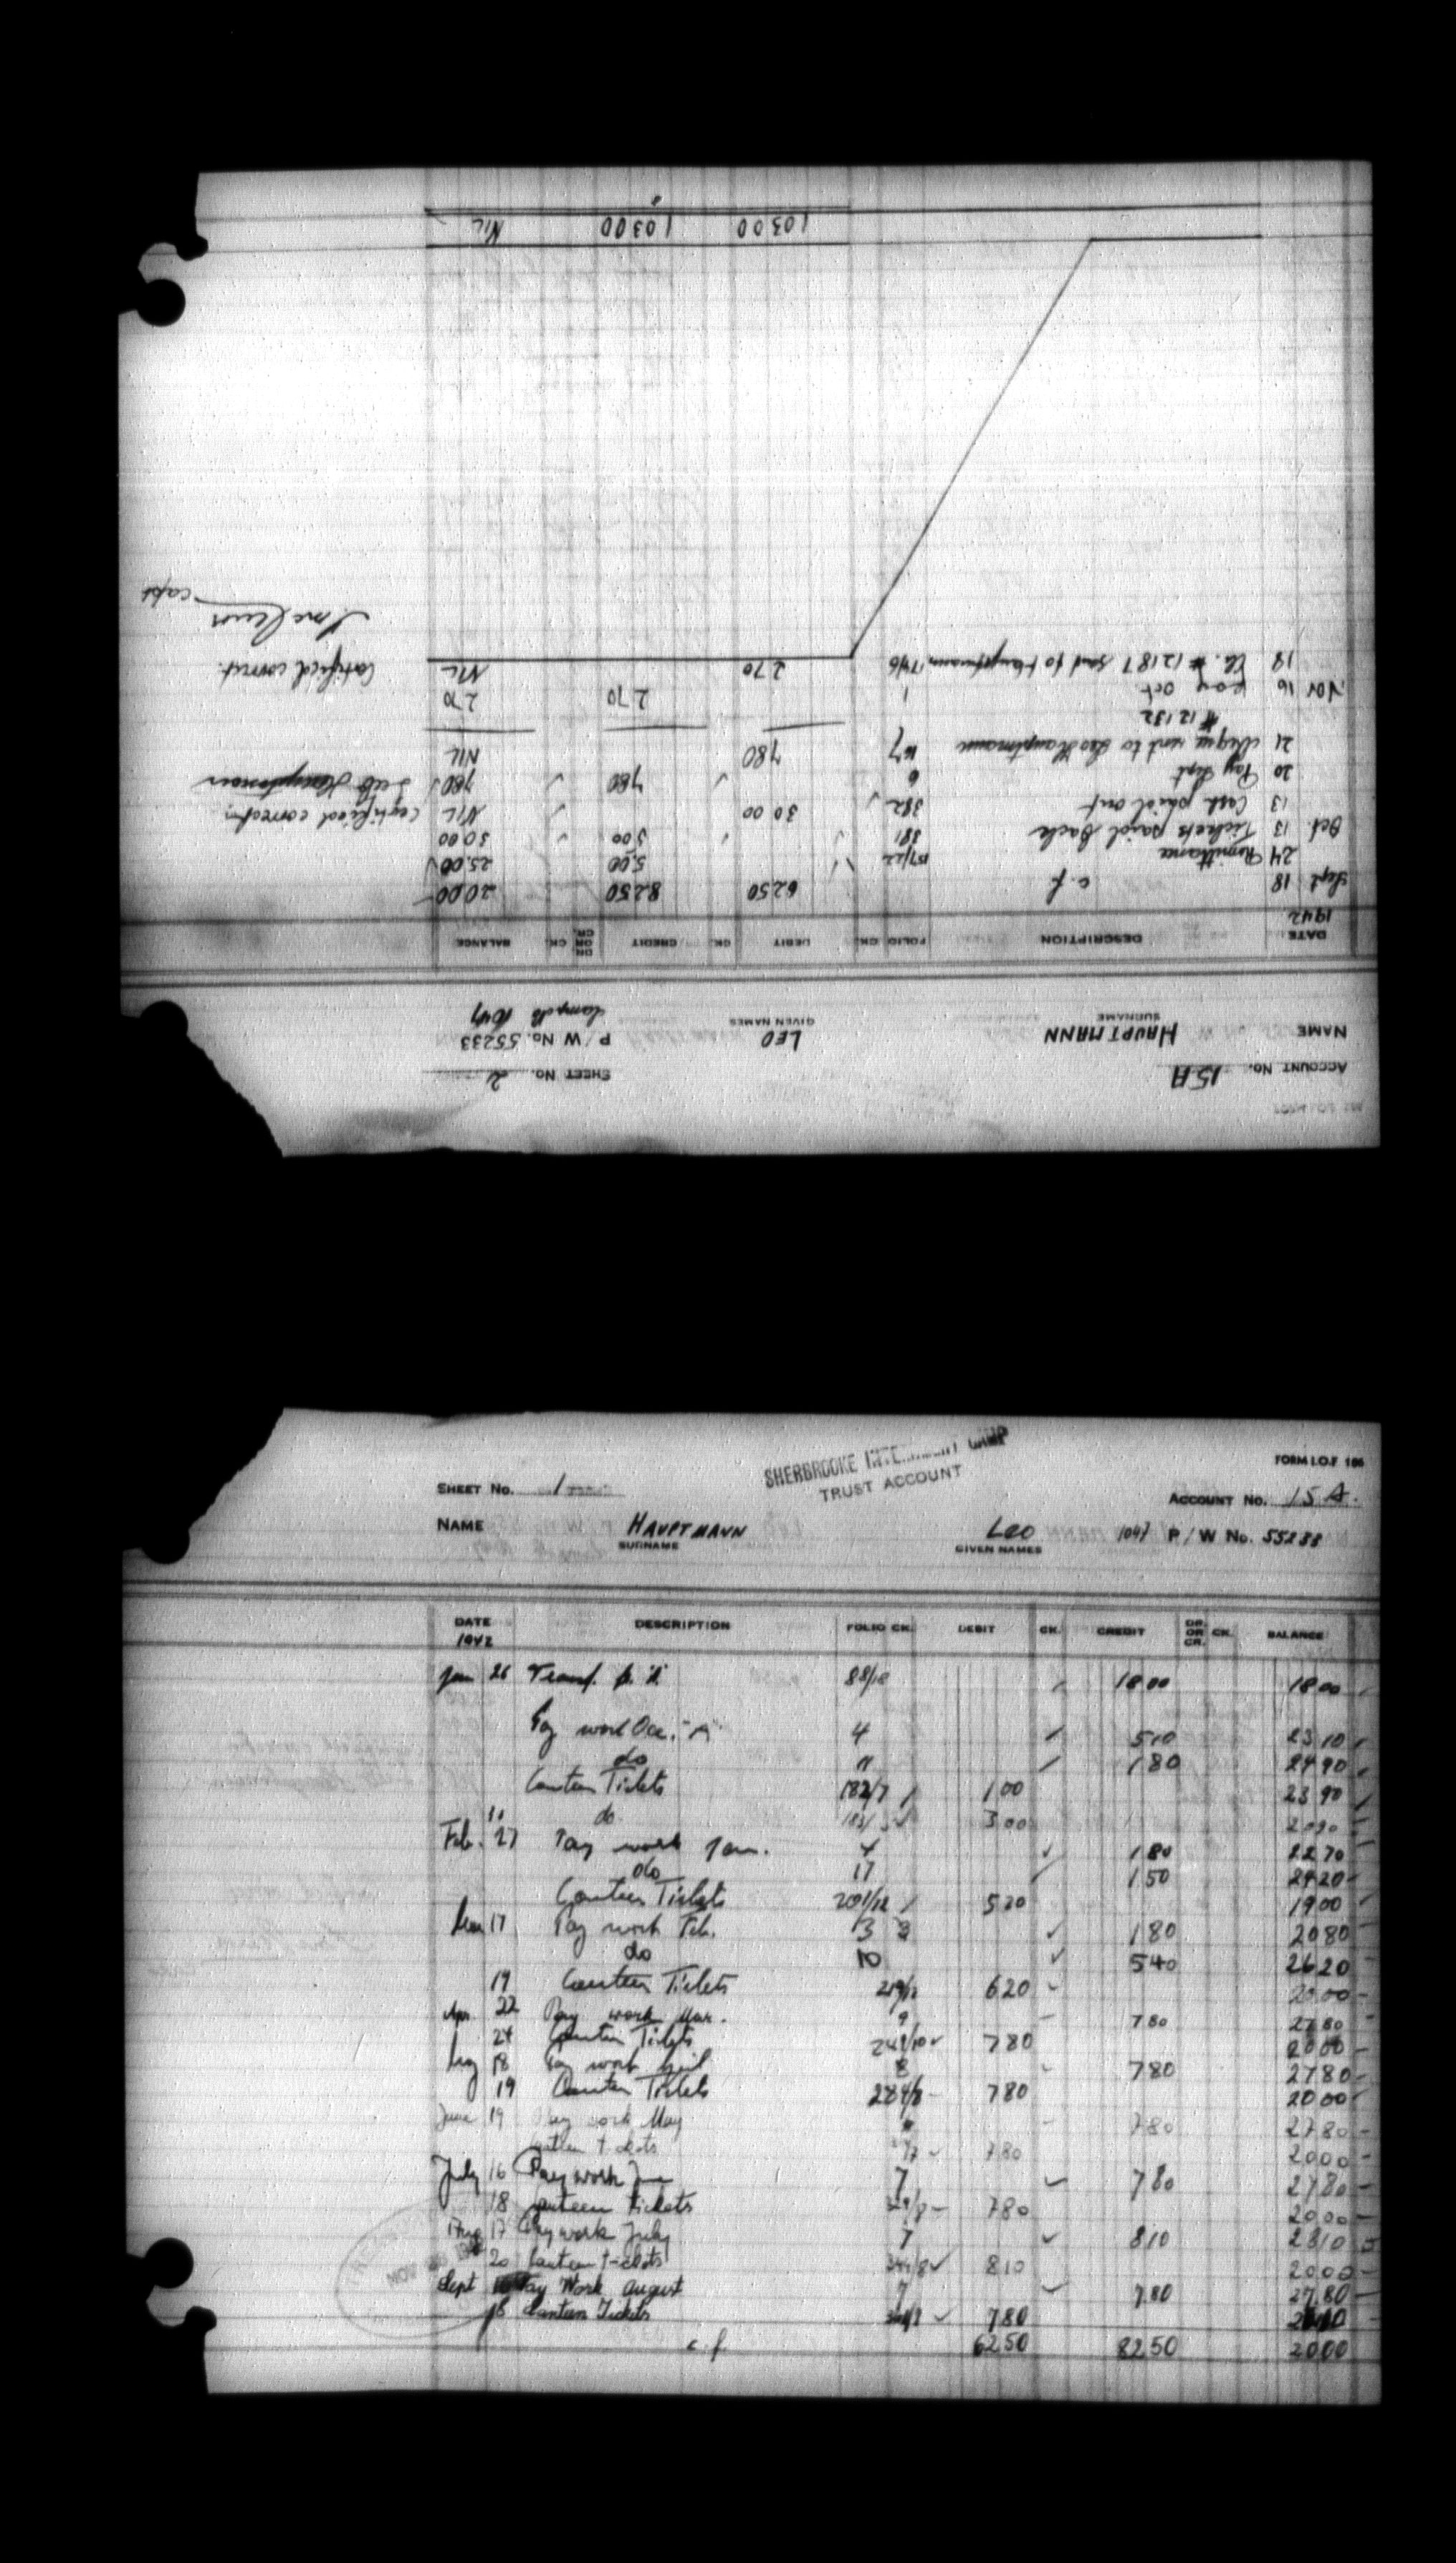 1942
Sept 18 c.f. 62 50 82 50 20 00
24 Remittance 157/22 5.00 25.00
Oct. 13 Tickets paid back 381 5 00 30 00
13 Cash paid out 382 30 00 NIL
20 Pay Sept 6 7 80 7 80
21 Cheque sent to Leo Hauptmann 167 7 80 NIL
# 12132
Nov 16 Pay Oct 1 2 70 2 70
18 Ch. # 12187 sent to Hauptmann 2 70 NIL
103 00 103 00 NIL
Certified correct
Leo Hauptmann
Certified correct.
Capt
ACCOUNT NO. 15A SHEET NO. 2
NAME HAUPTMANN LEO P/W No. 55233
SURNAME GIVEN NAMES
1047
DATE DESCRIPTION FOLIO CK. DEBIT CK. CREDIT DR. OR CR. CK. BALANCE
SHERBROOKE CAMP
TRUST ACCOUNT
FORM I.O.F. 106
SHEET NO. 1
ACCOUNT NO. 15 A.
NAME HAUPTMANN Leo 1047 P/W No. 55233
SURNAME GIVEN NAMES
DATE DESCRIPTION FOLIO CK. DEBIT CK. CREDIT DR. OR CR. CK. BALANCE
1942
Jan 26 Transf. 88/18 18 00 18 00
Pay work Dec. "A" 4 5 10 23 10
do 11 1 80 24 90
Canteen Tickets 182/7 1 00 23 90
do 3 00 20 90
Feb. 27 Pay work Jan. 4 1 80 22 70
do 17 1 50 24 20
Canteen Tickets 201/12 5 20 19 00
Mar 17 Pay work Feb. 3 1 80 20 80
do 10 5 40 26 20
19 Canteen Tickets 219/12 6 20 20 00
Apr. 22 Pay work Mar. 9 7 80 27 80
24 Canteen Tickets 249/10 7 80 20 00
May 18 Pay work April 8 7 80 27 80
19 Canteen Tickets 284/8 7 80 20 00
June 19 Pay work May 7 80 27 80
Canteen tickets 7 80 20 00
July 16 Pay work June 7 7 80 27 80
18 Canteen tickets 7 80 20 00
Aug 17 Pay work July 7 8 10 28 10
20 Canteen tickets 8 10 20 00
Sept Pay Work August 7 7 80 27.80
18 Canteen Tickets 7 80
c.f. 62 50 82 50 20 00